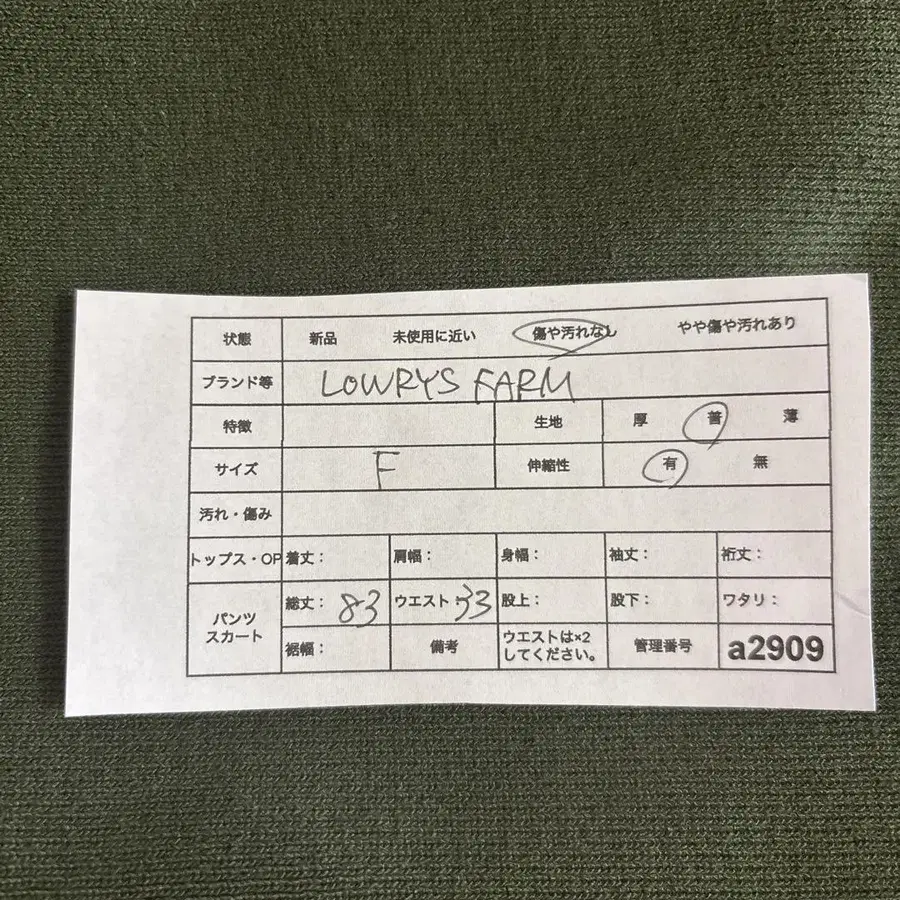 状態 新品 未使用に近い 傷や汚れなし やや傷や汚れあり
ブランド等 LOWRYS FARM
特徴 生地 厚 普 薄
サイズ F 伸縮性 有 無
汚れ・傷み
トップス・OP 着丈： 肩幅： 身幅： 袖丈： 裄丈：
パンツ
スカート
総丈： 83 ウエスト 33 股上： 股下： ワタリ：
裾幅： 備考 ウエストは×2
してください。
管理番号 a2909